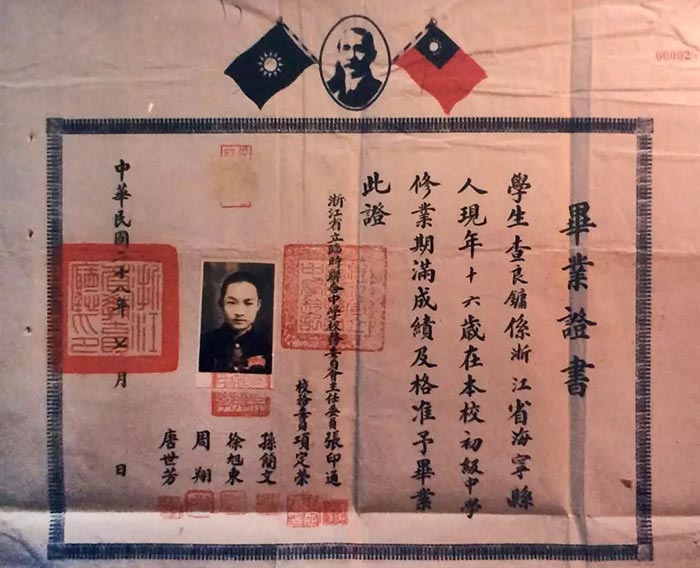 畢業證書
學生查良鏞係浙江省海寧縣
人現年十六歲在本校初級中學
修業期滿成績及格准予畢業
此證
浙江省立臨時聯合中學校務委員會主任委員張印通
校務委員項定榮
孫簡文
徐旭東
周翔
唐世芳
中華民國二十八年七月 日